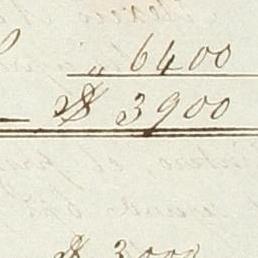 „ 6400
$ 3900
$ 3000